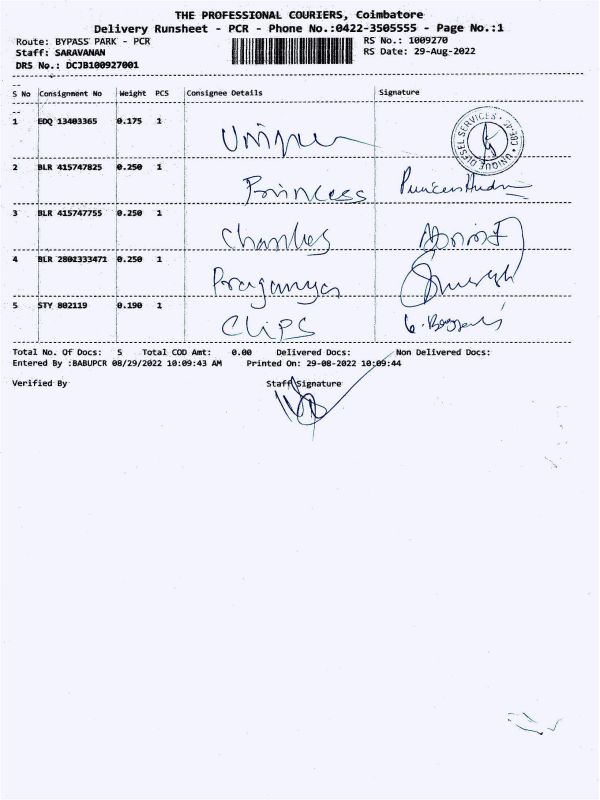 THE PROFESSIONAL COURIERS, Coimbatore
Delivery Runsheet - PCR - Phone No.:0422-3505555 - Page No.:1
Route: BYPASS PARK - PCR RS No.: 1009270
Staff: SARAVANAN RS Date: 29-Aug-2022
DRS No.: DCJB100927001
S No Consignment No Weight PCS Consignee Details Signature
1 EDQ 13403365 0.175 1
UNIQUE DIESEL SERVICES CBE-45
2 BLR 415747825 0.250 1 Princess
3 BLR 415747755 0.250 1 Charles
4 BLR 2802333471 0.250 1
5 STY 802119 0.190 1 Clips
Total No. Of Docs: 5 Total COD Amt: 0.00 Delivered Docs: Non Delivered Docs:
Entered By :BABUPCR 08/29/2022 10:09:43 AM Printed On: 29-08-2022 10:09:44
Verified By Staff Signature